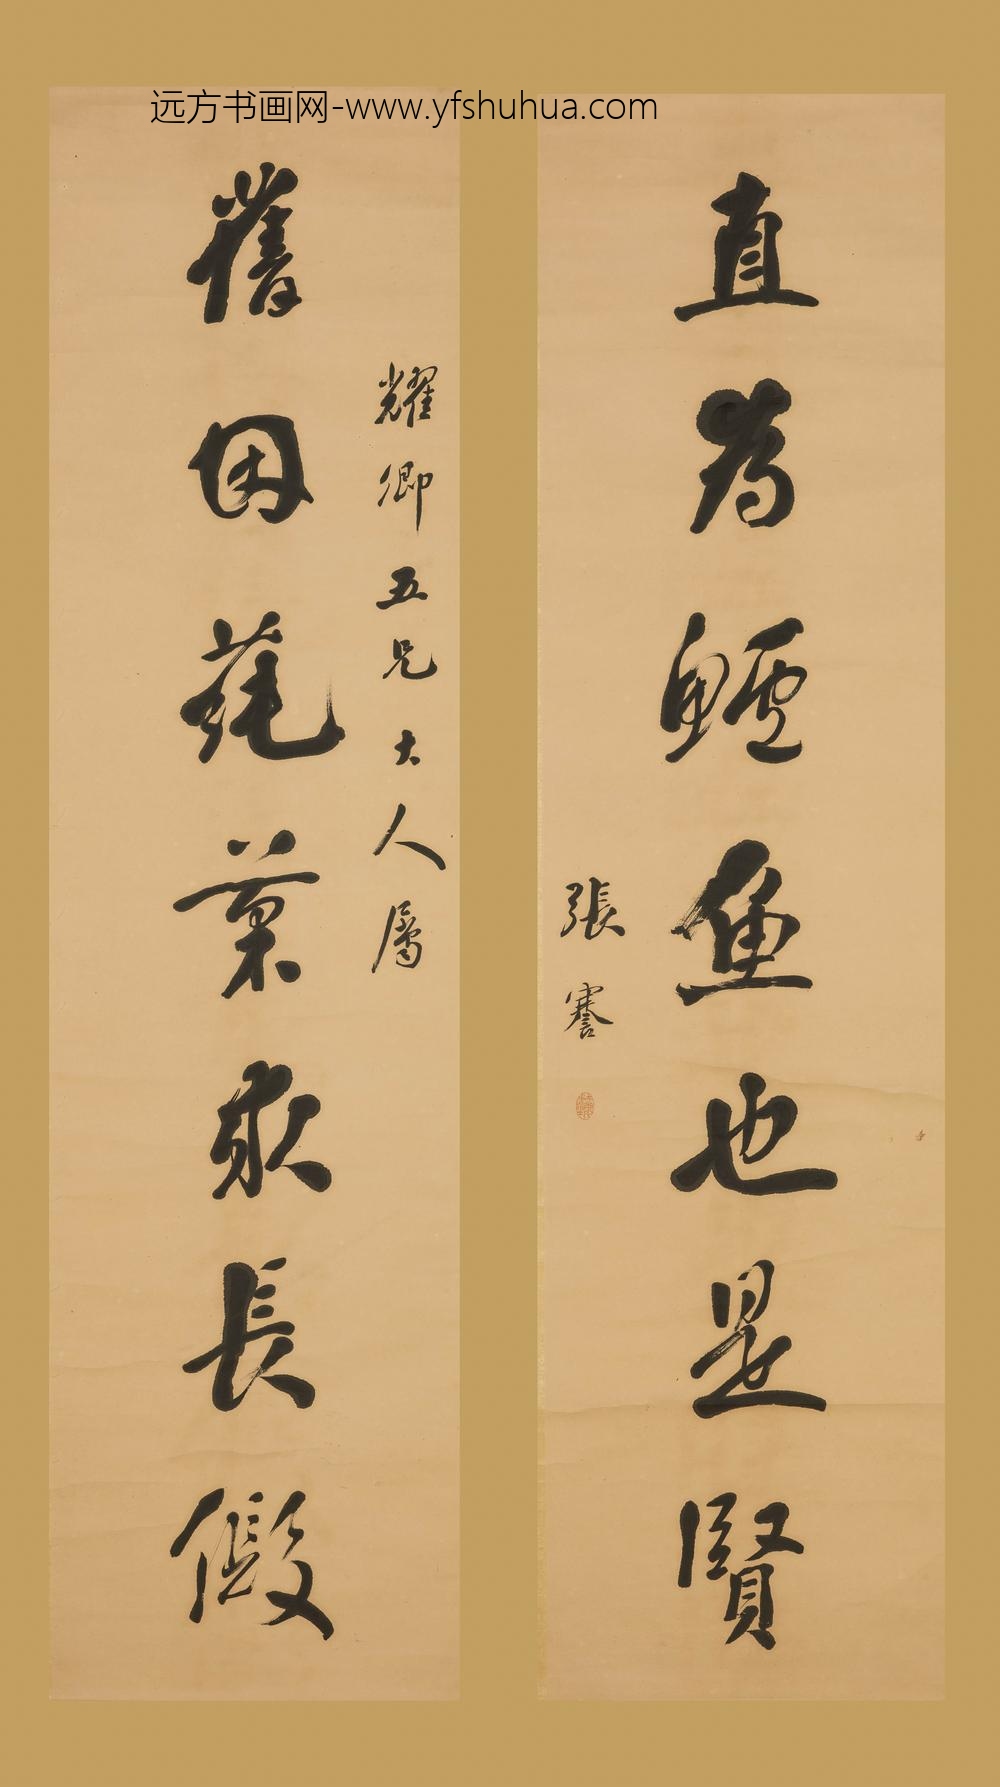 远方书画网-www.yfshuhua.com
耀卿五兄大人屬
舊因蒓菜求長假
直為鱸魚也是賢
張謇